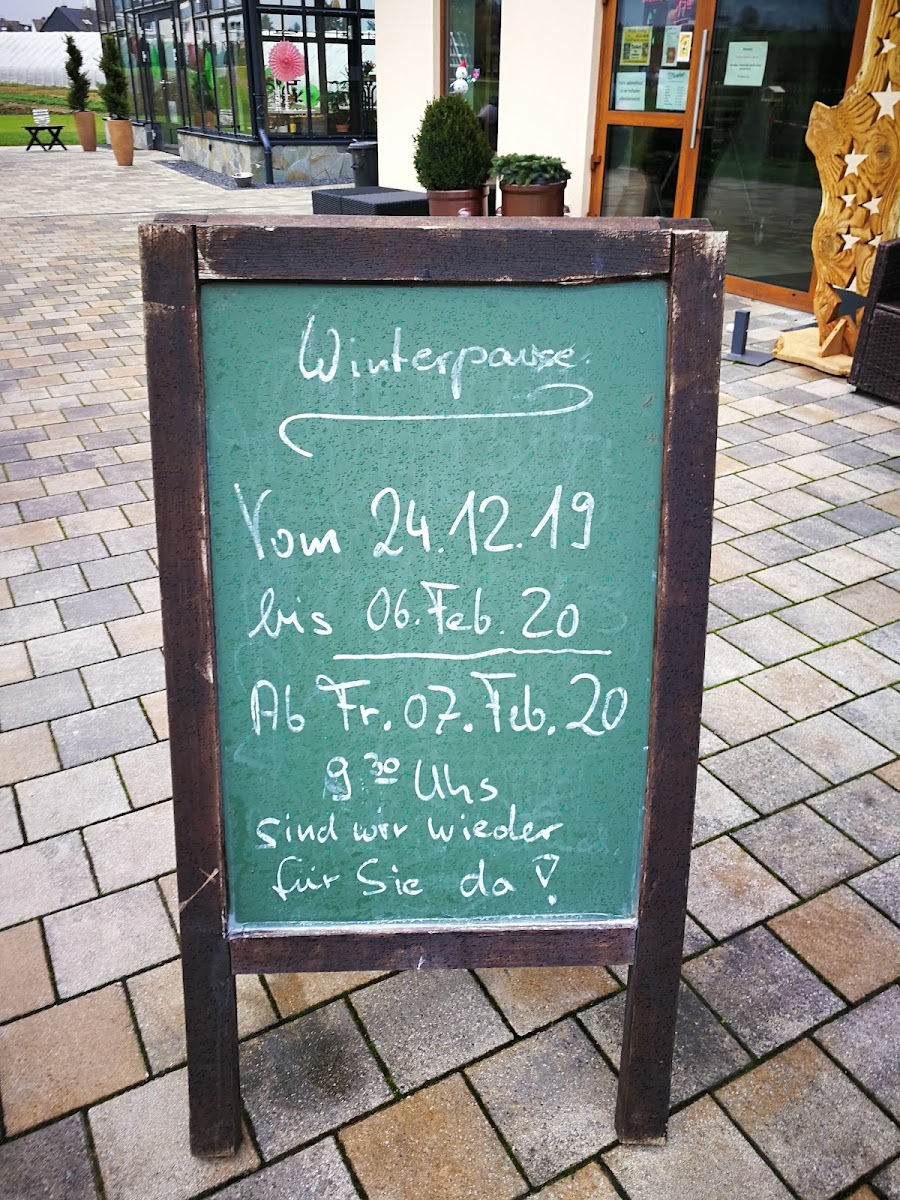 Winterpause.
Vom 24.12.19
bis 06. Feb. 20
Ab Fr. 07. Feb. 20
9³⁰ Uhr
sind wir wieder
für Sie da !